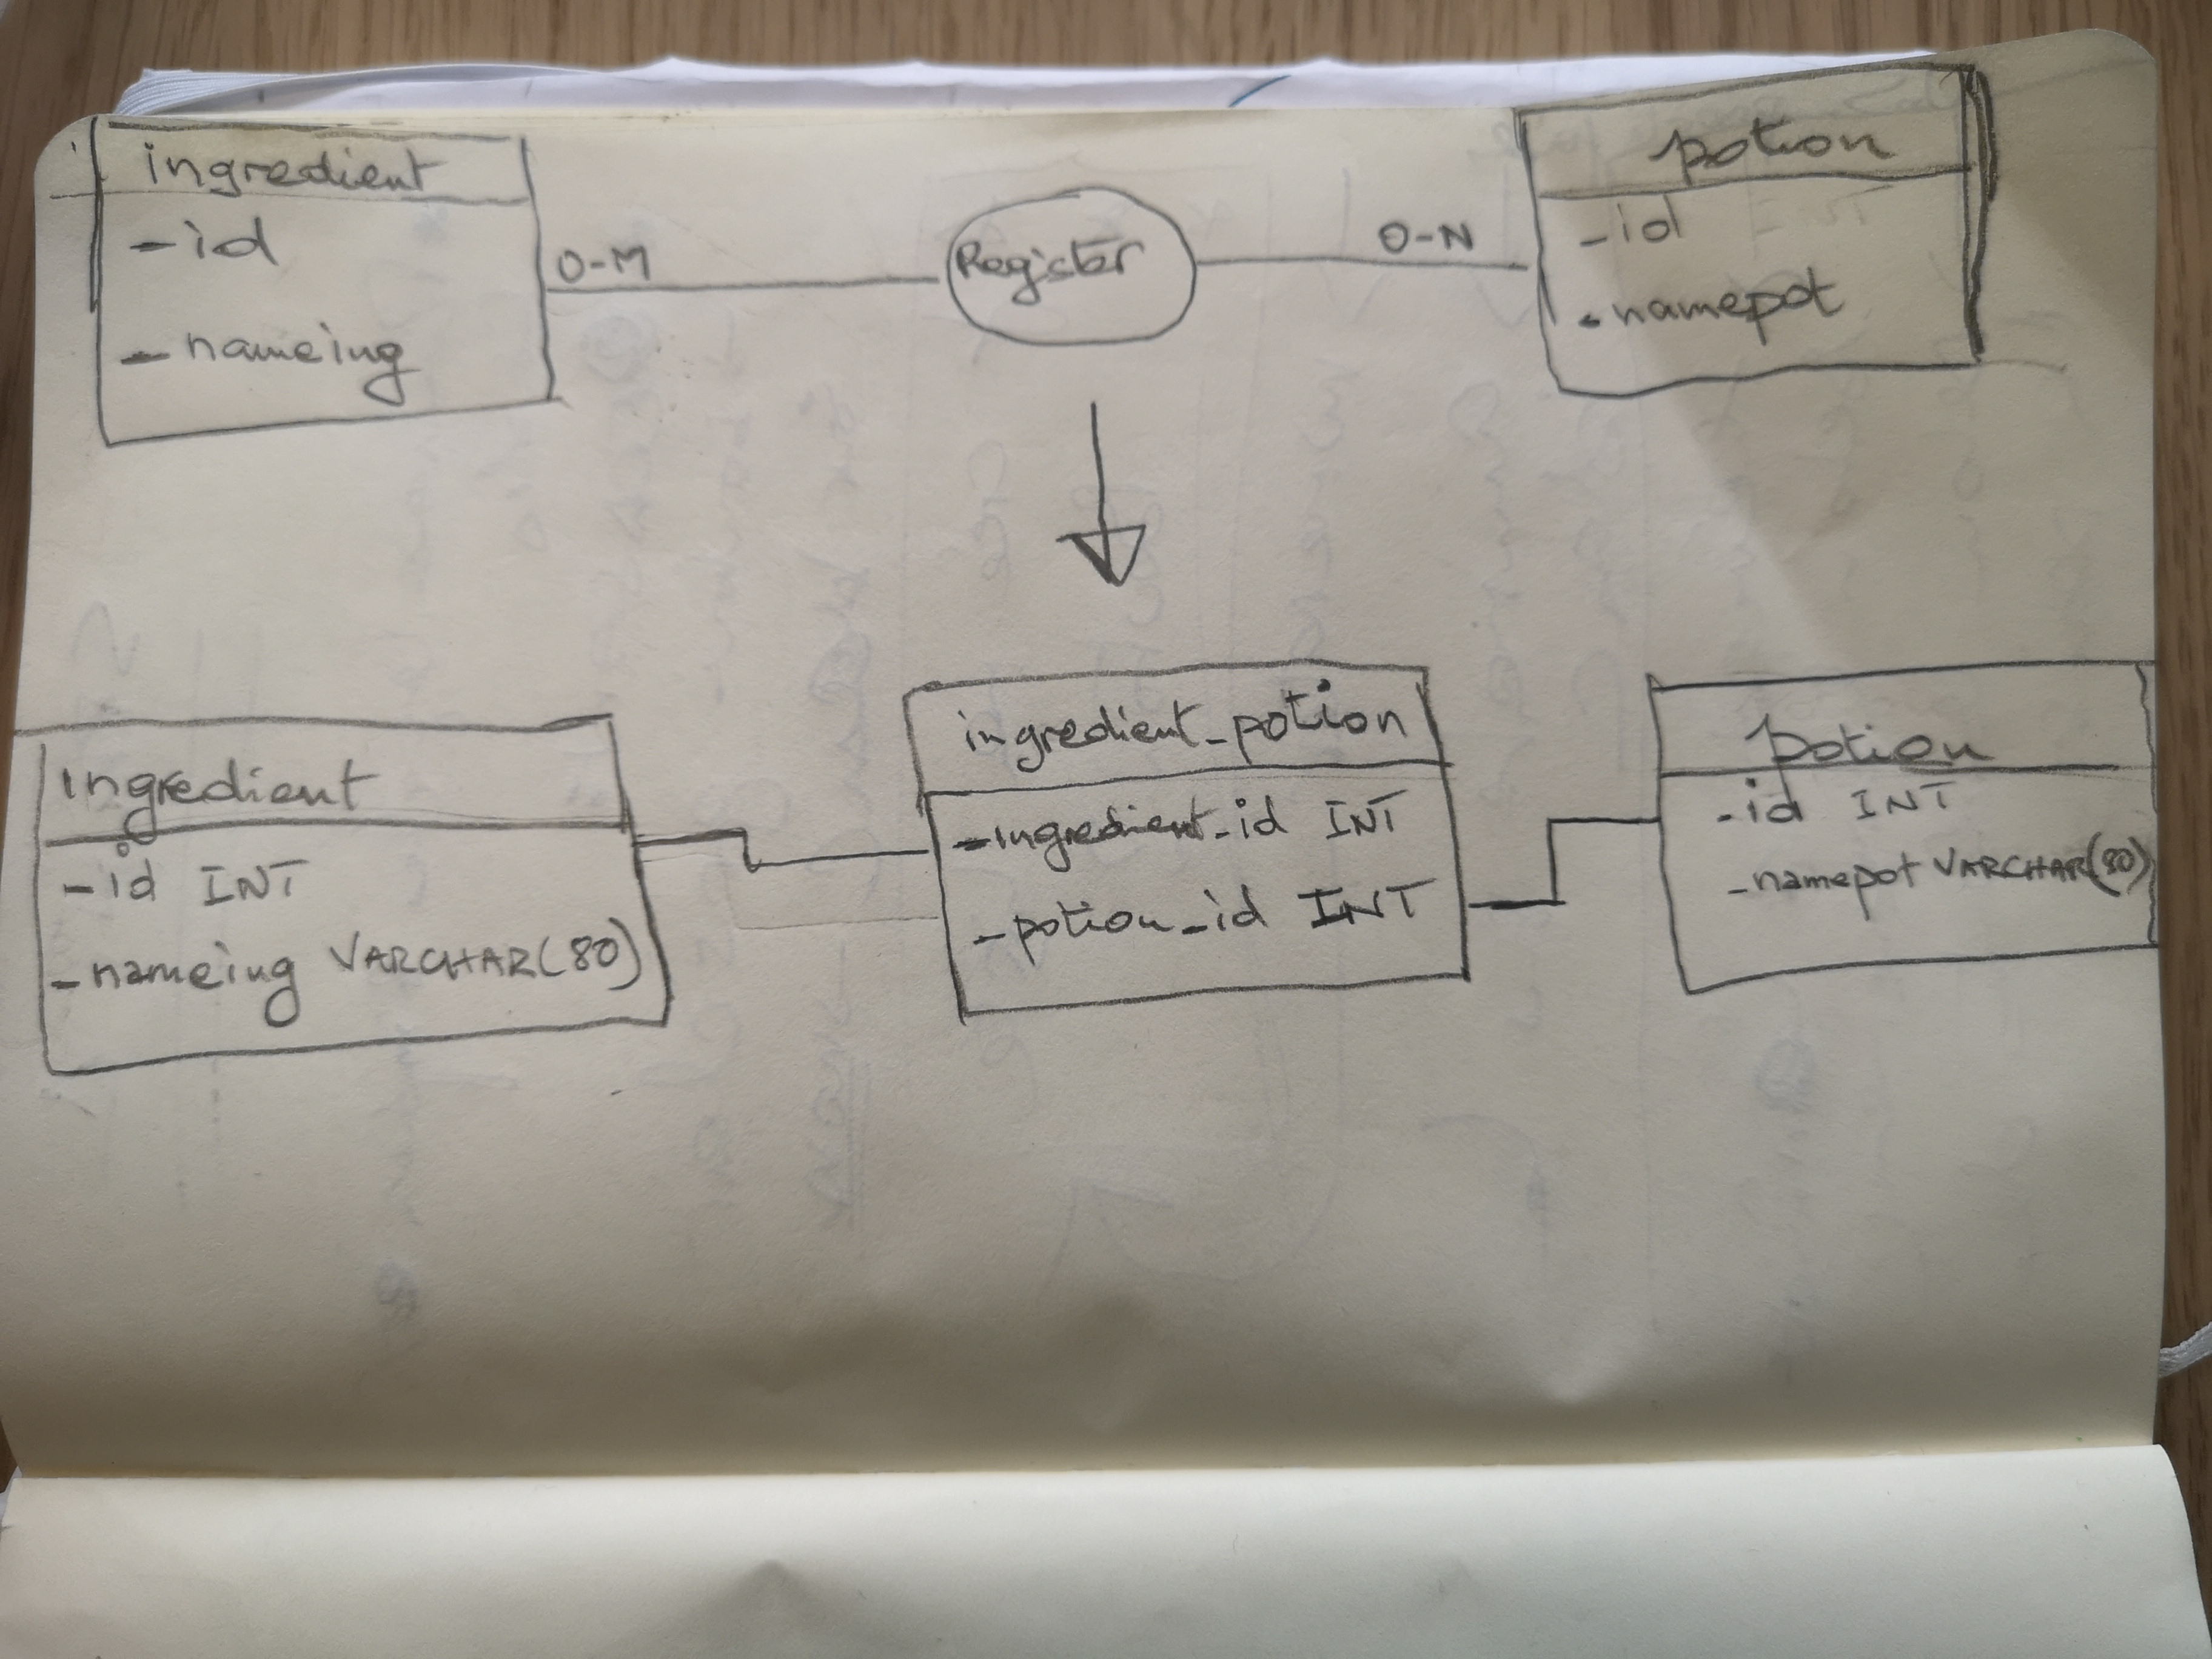 ingredient
-id
-nameing
O-M
Register
O-N
potion
-id
-namepot
ingredient
-id INT
-nameing VARCHAR(80)
ingredient_potion
-ingredient_id INT
-potion_id INT
potion
-id INT
-namepot VARCHAR(80)